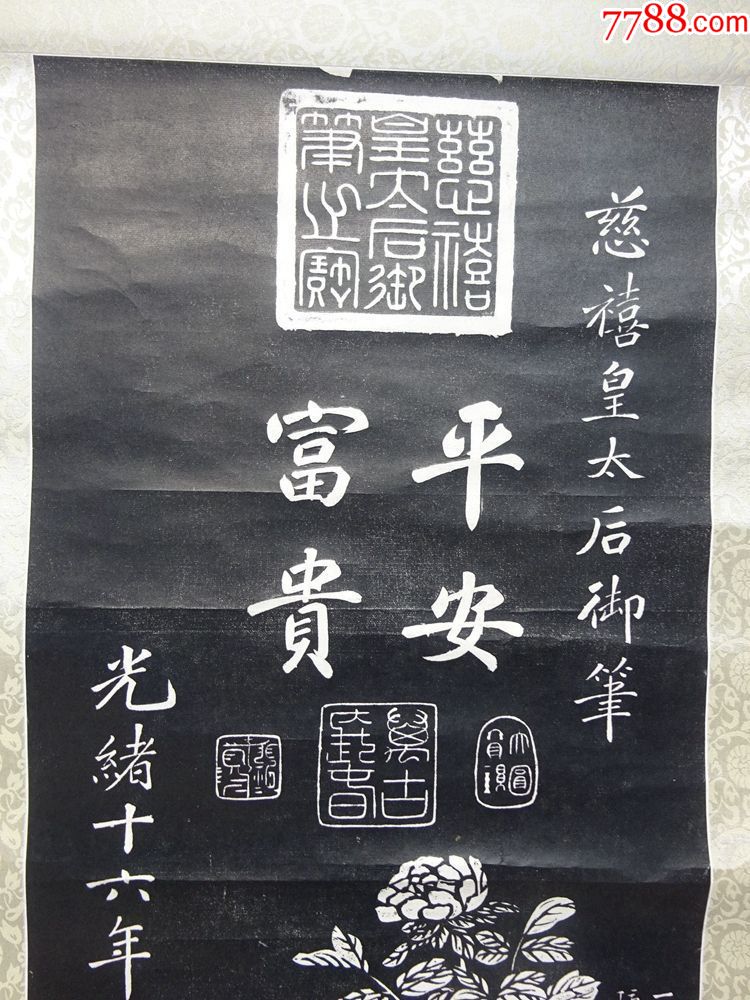 7788.com
慈禧
皇太后御
筆之寶
慈禧皇太后御筆
平安
富貴
萬古
光緒十六年